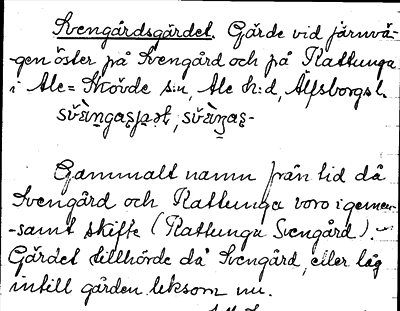 Svengårdsgärdet. Gärde vid järnvä-
-gen öster på Svengård och på Kattunga
i Ale=Skövde s:n, Ale h:d, Älfsborgs l.
Gammalt namn från tid då
Svengård och Kattunga voro i gemen-
-samt skifte (Kattunga Svengård).-
Gärdet tillhörde då Svengård, eller låg
intill gården liksom nu.